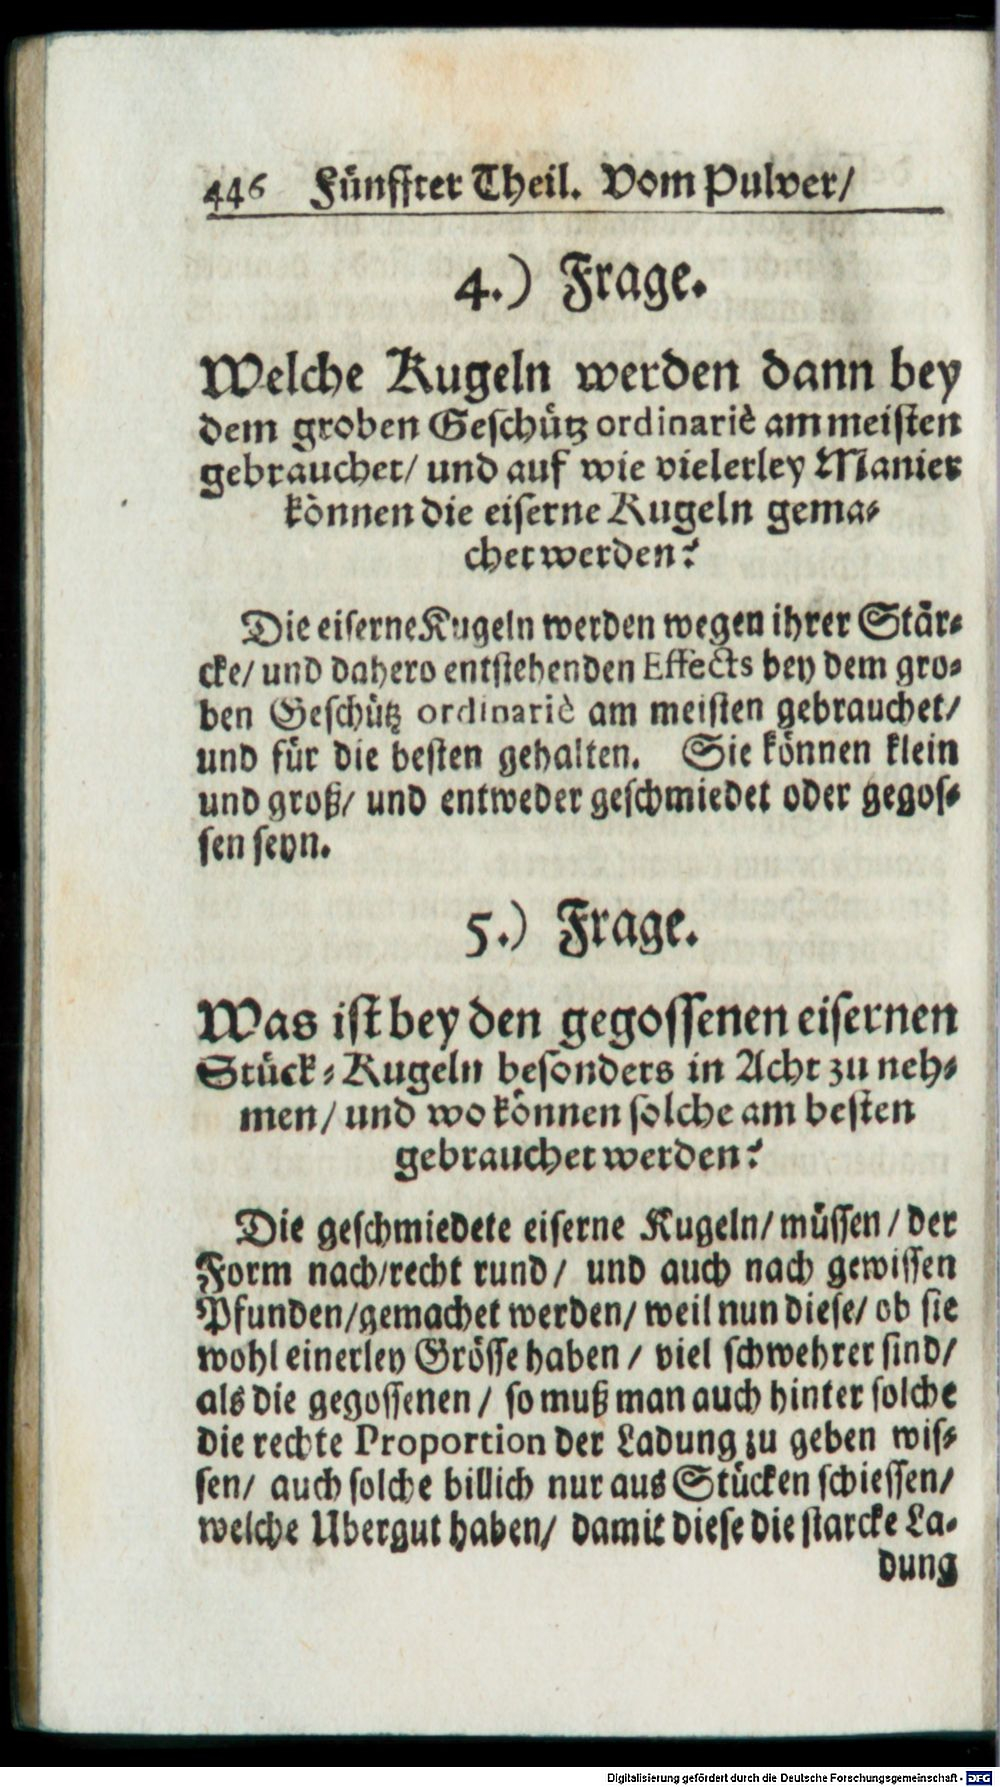 446 Fünffter Theil. Vom Pulver/
4.) Frage.
Welche Kugeln werden dann bey
dem groben Geschütz ordinariè am meisten
gebrauchet/ und auf wie vielerley Manier
können die eiserne Kugeln gema-
chet werden?
Die eiserne Kugeln werden wegen ihrer Stär-
cke/ und dahero entstehenden Effects bey dem gro-
ben Geschütz ordinariè am meisten gebrauchet/
und für die besten gehalten. Sie können klein
und groß/ und entweder geschmiedet oder gegos-
sen seyn.
5.) Frage.
Was ist bey den gegossenen eisernen
Stück-Kugeln besonders in Acht zu neh-
men/ und wo können solche am besten
gebrauchet werden?
Die geschmiedete eiserne Kugeln/ müssen/ der
Form nach/ recht rund/ und auch nach gewissen
Pfunden/ gemachet werden/ weil nun diese/ ob sie
wohl einerley Grösse haben/ viel schwehrer sind/
als die gegossenen/ so muß man auch hinter solche
die rechte Proportion der Ladung zu geben wis-
sen/ auch solche billich nur aus Stücken schiessen/
welche Ubergut haben/ damit diese die starcke La-
dung
Digitalisierung gefördert durch die Deutsche Forschungsgemeinschaft - DFG